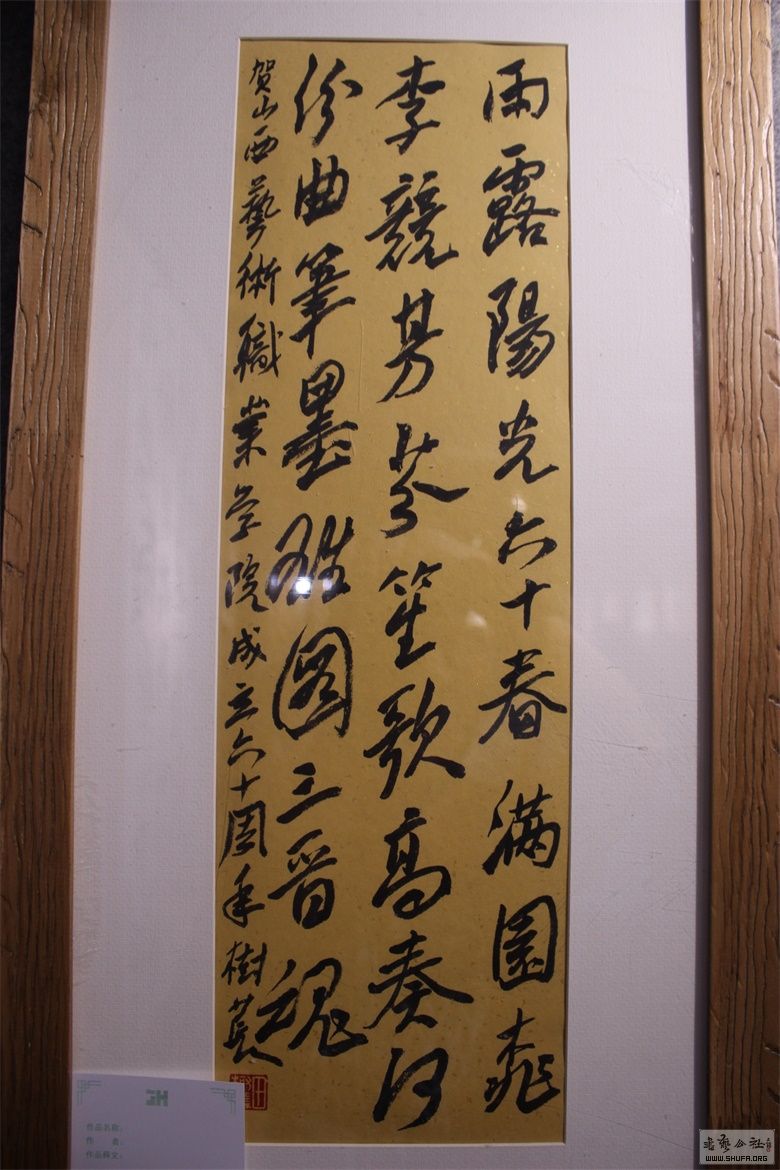 雨露陽光六十春滿園桃
李競芳芬笙歌高奏河
汾曲筆墨雄圖三晉魂
贺山西藝術職業学院成立六十周年樹
作品名称：
作 者：
作品释文：
書藝公社
WWW.SHUFA.ORG